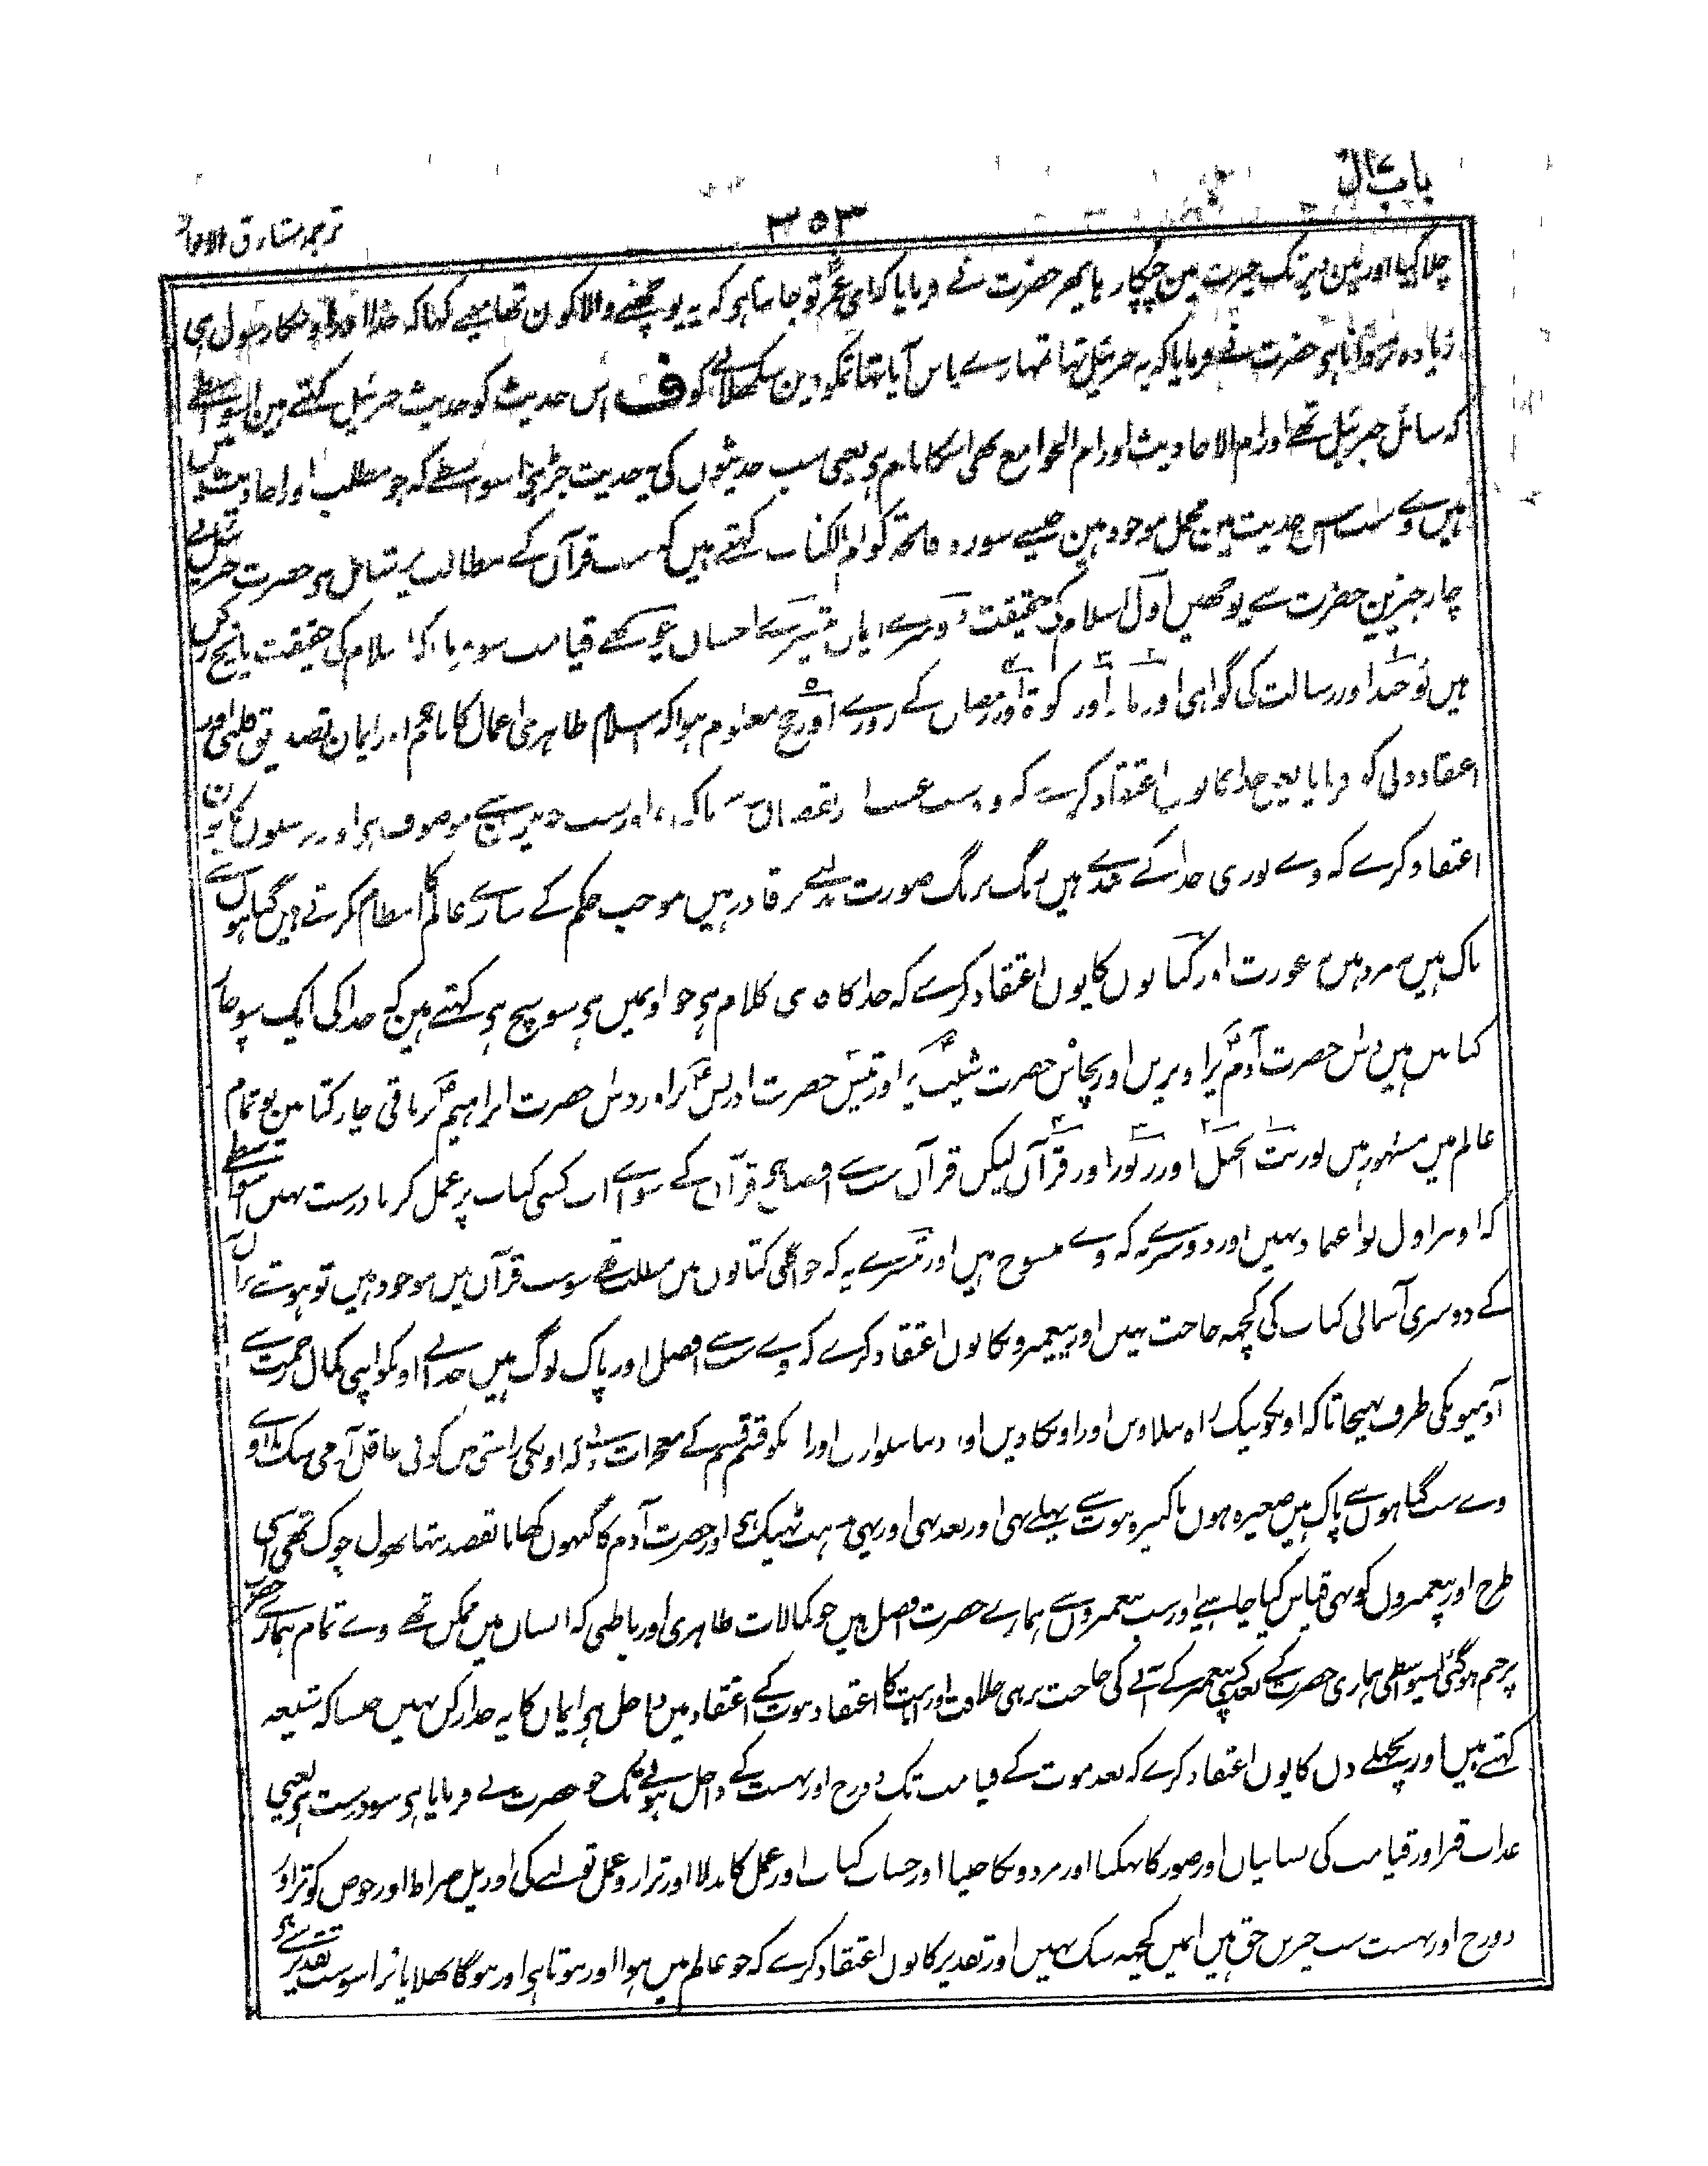 باب
٣٥٣
ترجمہ مشارق الانوار
چلا گیا اور مین دیر تک حیرت مین چپکا رہا پھر حضرت نے فرمایا کہ ای عمر تو جانتا ہی کہ یہ پوچھنے والا کون تھا مینے کہا کہ خدا اور اوسکا رسول ہی
زیادہ تر دانا ہی حضرت نے فرمایا کہ یہ جبرئیل تھا تمہارے پاس آیا تھا تمکو دین سکھلانیکو ف اس حدیث کو حدیث جبرئیل کہتے ہین اسواسطے
کہ سائل جبرئیل تھے اور ام الاحادیث اور ام الجوامع بھی اسکا نام ہی یعنی سب حدیثوں کی یہ حدیث جڑ ہی اسواسطے کہ جو مطلب اور احادیث میں
ہیں وے سب اس حدیث مین مجمل موجود ہین جیسے سورہ فاتحہ کو ام الکتاب کہتے ہیں کہ سب قرآن کے مطالب پر شامل ہی حضرت جبرئیل نے
چار چیزین حضرت سے پوچھیں اول اسلام کی حقیقت دوسرے ایمان تیسرے احسان چوتھے قیامت سو فرمایا کہ اسلام کی حقیقت پانچ رکن
ہیں توحید اور رسالت کی گواہی اور نماز اور زکوة اور رمضان کے روزے اور حج معلوم ہوا کہ اسلام ظاہری اعمال کا نام ہی اور ایمان تصدیق قلبی اور
اعتقاد دلی کو فرمایا یعنی خدا کا یوں اعتقاد کرے کہ وہ سب عیب اور نقصان سے پاک ہی اور سب موصوف ہی اور رسلوں کا یوں
اعتقاد کرے کہ وے نوری خدا کے بندے ہیں رنگ برنگ صورت بدلنے پر قادر ہیں موجب حکم کے سارے عالم کا انتظام کرتے ہیں گناہوں سے
پاک ہیں نہ مرد ہیں نہ عورت اور کتابوں کا یوں اعتقاد کرے کہ خدا کا وہ ہی کلام ہی جو اوسمیں ہی سو سچ ہی کہتے ہین کہ خدا کی ایک سو چار
کتابیں ہیں دس حضرت آدم پر اوتریں اور پچاس حضرت شیث پر اور تیس حضرت ادریس پر اور دس حضرت ابراہیم پر باقی چار کتابین جو تمام
عالم میں مشہور ہیں توریت انجیل اور زبور اور قرآن لیکن قرآن سب سے افضل ہی قرآن کے سوا اب کسی کتاب پر عمل کرنا درست نہیں اسواسطے
کہ اونپر اول تو اعتماد نہیں اور دوسرے یہ کہ وے منسوخ ہیں اور تیسرے یہ کہ جو اگلی کتابوں میں مطلب تھے سو سب قرآن میں موجود ہیں تو ہوتے قرآن
کے دوسری آسمانی کتاب کی کچھ حاجت نہیں اور پیغمبرونکا یوں اعتقاد کرے کہ یے سب سے افضل اور پاک لوگ ہیں خدا نے اونکو اپنی کمال رحمت سے
آدمیونکی طرف بھیجا تاکہ اونکو نیک راہ بتلاویں اور اونکا دین اور دنیا سنواریں اور اونکو قسم قسم کے معجزات دیئے کہ اونکی راستی میں کوئی عاقل آدمی شک نلاوے
وے سب گناہوں سے پاک ہیں صغیرہ ہوں یا کبیرہ نبوت سے پہلے بھی اور بعد بھی اور یہی مذہب ٹھیک ہی اور حضرت آدم کا گیہوں کھانا بقصد نتھا بھول چوک تھی اسی
طرح اور پیغمبروں کو بھی قیاس کیا چاہیے اور سب پیغمبروں سے ہمارے حضرت افضل ہیں جو کمالات ظاہری اور باطنی کہ انسان میں ممکن تھے وے تمام ہمارے حضرت
پر ختم ہو گئی اسیواسطے ہماری حضرت کے بعد کسی پیغمبر کے آنے کی حاجت نرہی خلافت اور امامت کا اعتقاد نبوت کے اعتقاد میں داخل ہی ایمان کا یہ جدا رکن نہیں جیسا کہ شیعہ
کہتے ہیں اور پچھلے دن کا یوں اعتقاد کرے کہ بعد موت کے قیامت تک دوزخ اور بہشت کے داخل ہونے تک جو حضرت نے فرمایا ہی سو درست ہی یعنی
عذاب قبر اور قیامت کی نشانیاں اور صور کا پھکنا اور مردونکا جینا اور حساب کتاب اور عمل کا بدلا اور ترازو عمل تولنے کی اور پل صراط اور حوض کوثر اور
دوزخ اور بہشت سب چیزیں حق ہیں اسمیں کچھ شک نہیں اور تقدیر کا یوں اعتقاد کرے کہ جو عالم میں ہوا اور ہوتا ہی اور ہوگا بھلا یا برا سو سب تقدیر سے ہی